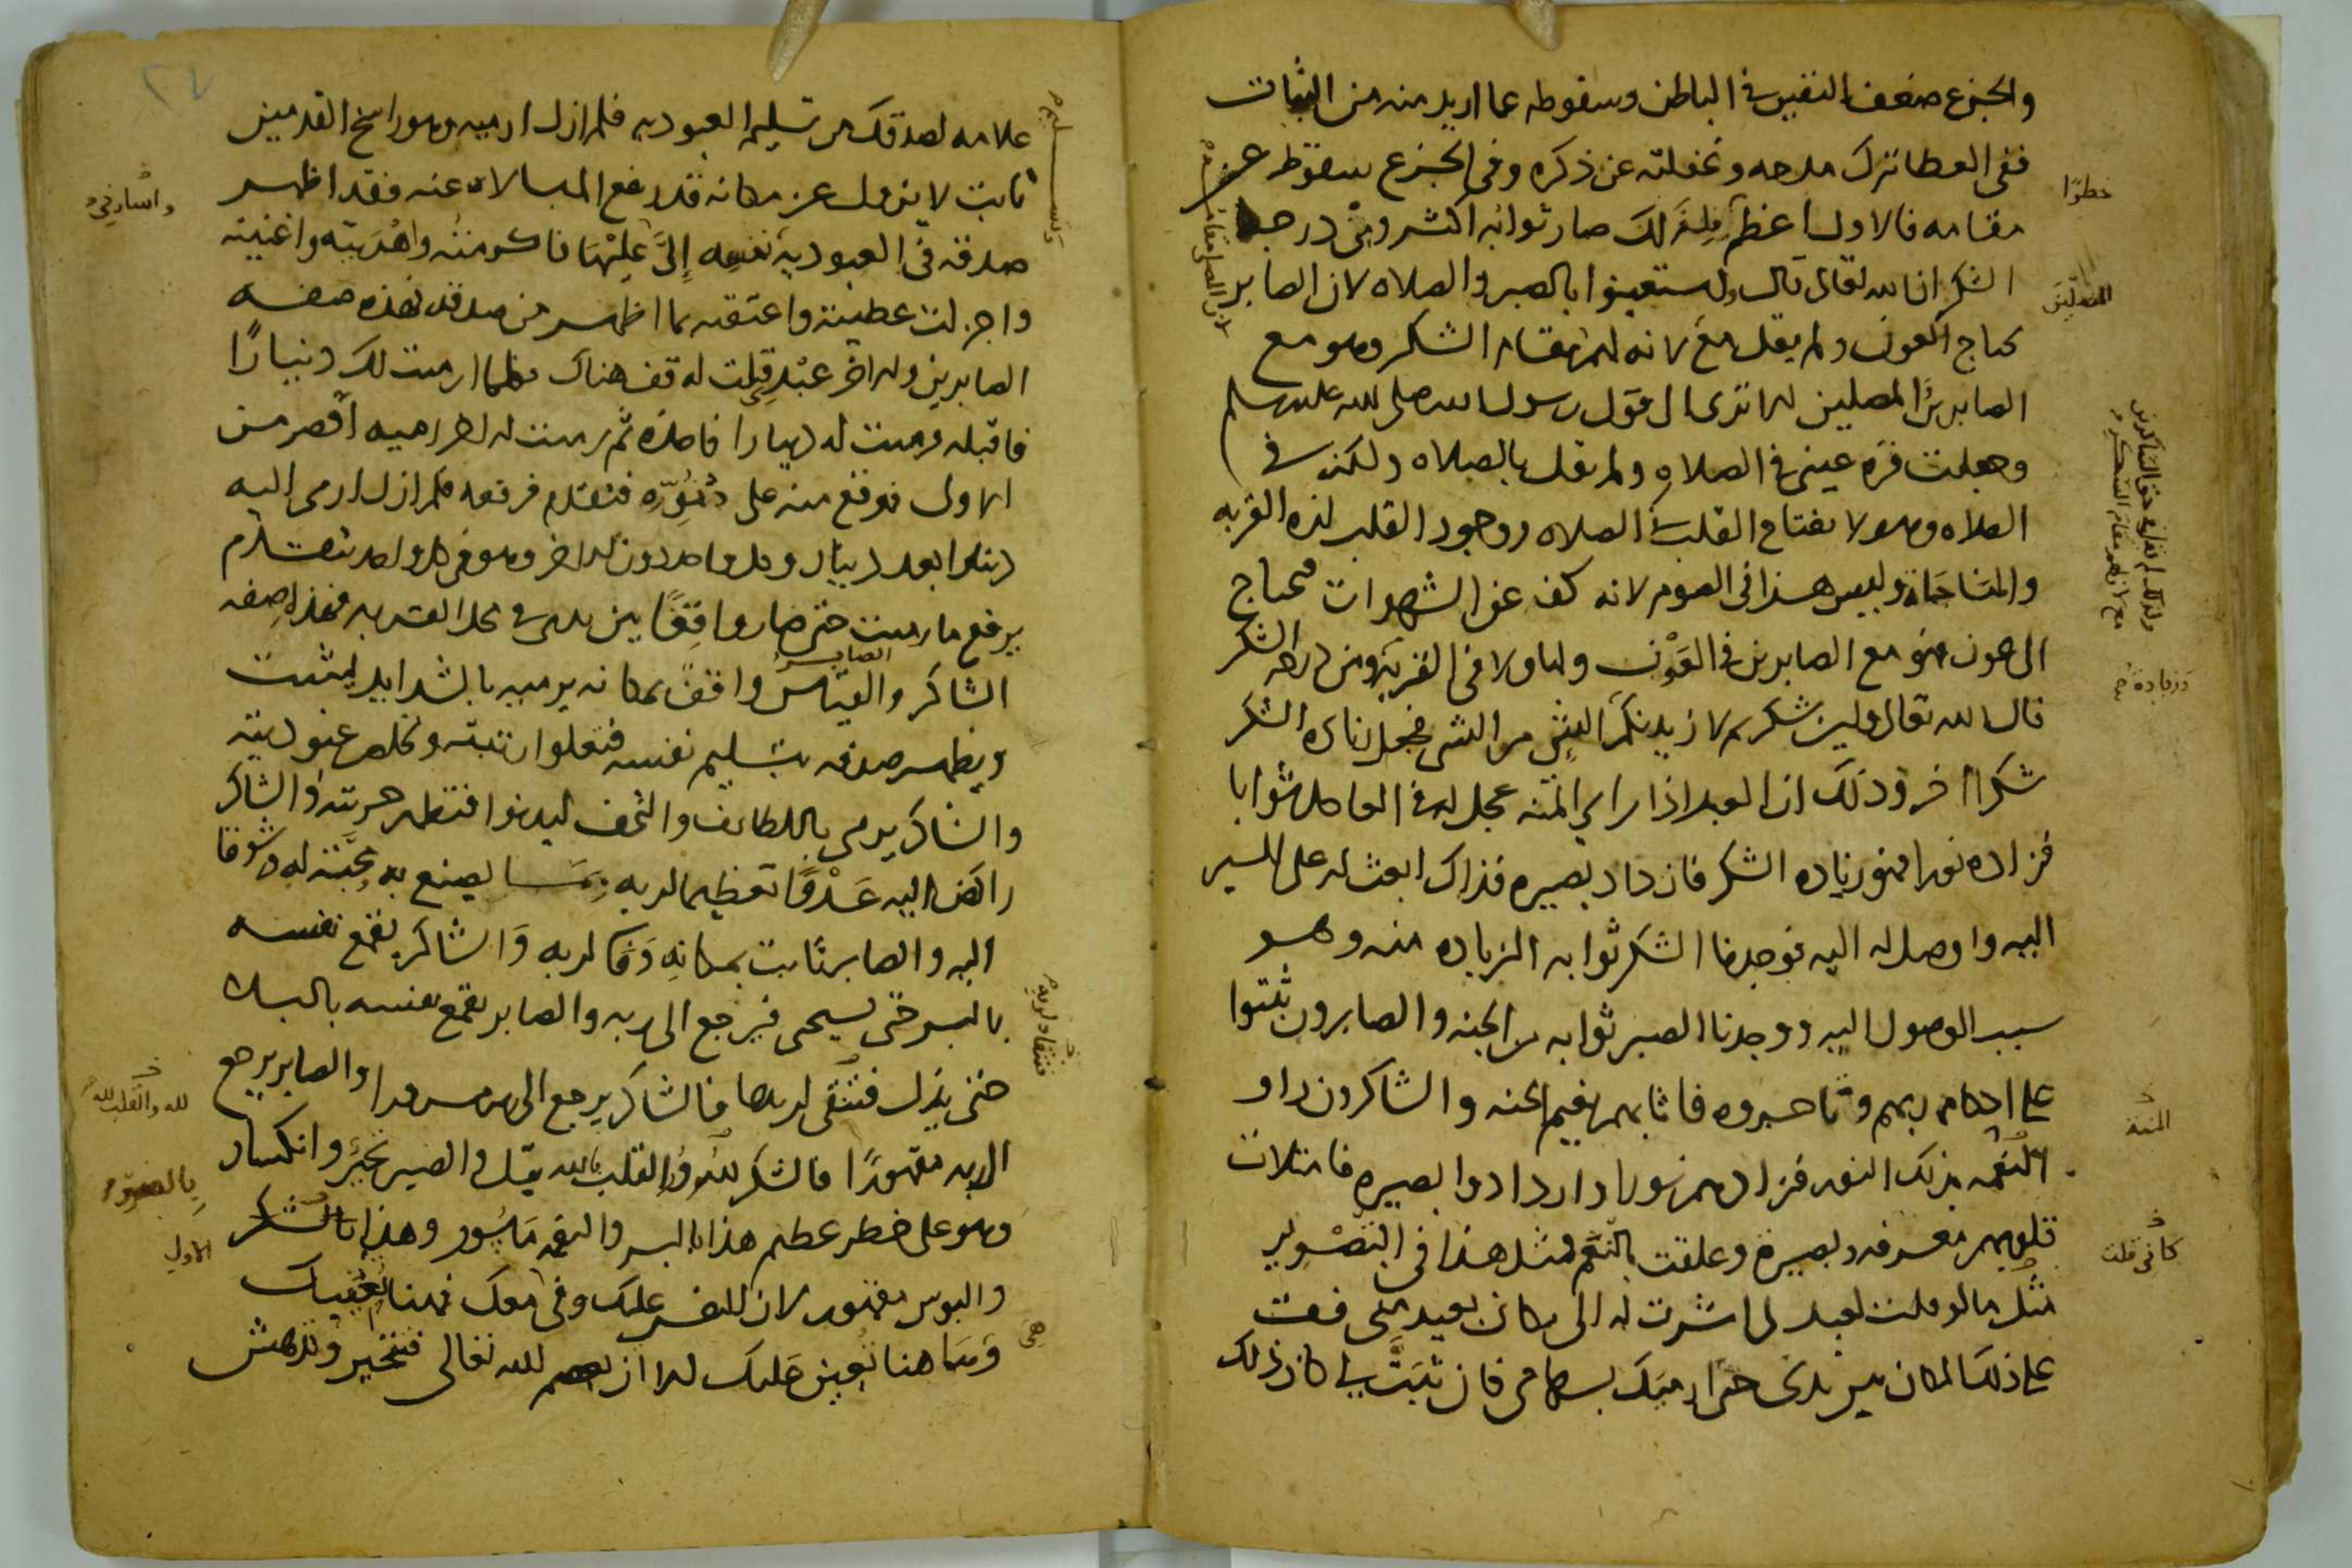 والجزع ضعف النفس في الباطن وسقوطه عما اريد منه من الثبات
ففي العطا ترك مدحه وغفلته عن ذكره وفي الجزع سقوطه عن
مقامه فالاول اعظم فلذلك صار ثوابه اكثر ومن درجة
الشكر ان الله تعالى قال واستعينوا بالصبر والصلاه لان الصابر
محتاج العون ولم يقل مع لانه لهم مقام الشكر وهو مع
الصابرين المصلين الا ترى الى قول رسول الله صلى الله عليه وسلم
وجعلت قرة عيني في الصلاه ولم يقل بالصلاه ولكن في
الصلاه وهو لانفتاح القلب في الصلاه ووجود القلب لذه القربه
والمناجاة وليس هذا في الصوم لانه كف عن الشهوات محتاج
الى عون فهو مع الصابرين في العون والاولى في القربة ومن درجه الشكر
قال الله تعالى ولئن شكرتم لازيدنكم الشي من الشي فجعل زياده الشكر
شكرا اخر وذلك ان العبد اذا راى المنه عجل له في العاجل ثوابا
فزاده نورا فهو زياده الشكر فازداد بصيره فذاك ابعث له على السير
اليه واوصل له اليه فوجدنا الشكر ثوابه الزياده منه وهو
سبب الوصول اليه ووجدنا الصبر ثوابه من الجنه والصابرون ثبتوا
على احكام ربهم وناصبروه فاثابهم نعيم الجنه والشاكرون راو
النعمه بذلك النور فزادهم نورا وازدادوا بصيره فامتلات
قلوبهم معرفه وبصيرة وعلقت بالنعم ومثل هذا في التصوير
مثل ما لو قلت لعبد لي اشرت له الى مكان بعيد مني فقف
على ذلك المكان بين يدي حتى ارميك بسهامي فان ثبت لي كان ذلك
خطرا
المصلين
وزيادة
المنة
كاني قلت
علامه لصدقك من تسليم العبوديه فلم ازل ارميه وهو راسخ القدمين
ثابت لا يزول عن مكانه قد رفع المبالاه عنه فقد اظهر
صدقه في العبودية نفسه إليَّ عليها فاكرمته واهديته واغنيته
واجزلت عطيته واعتقته بما اظهر من صدقه فهذه صفه
الصابرين والاخر عبد قلت له قف هناك فكلما ارميت لك دينارًا
فاقبله فرميت له دينارا فاخذه ثم رميت له اخر رميه اقصر من
الاول فوقع منه على دُنُوِّه فتقدم فرفعه فلم ازل ارمي اليه
دينارا بعد دينار وكل واحد دون الاخر وهو في كل واحد يتقدم
يرفع ما رميت حتى صار واقفًا بين يدي في محل القربه فهذا صفه
الشاكر والصابر واقفٌ بمكانه يرميه بالشدايد ليثبت
ويظهر صدقه بتسليم نفسه فتعلوا رتبته وتخلص عبوديته
والشاكر يرمى باللطايف والتحف ليدنوا فتظهر حريته والشاكر
راكض اليه عَدْوًا تعظيما لربه بما يصنع به محبّة له وشوقا
اليه والصابر ثابت بمكانه وفا لربه وَالشاكر يقمع نفسه
بالبر حتى يستحي فيرجع الى ربه والصابر يقمع نفسه بالبلا
حتى يذل فتنقى لربها فالشاكر يرجع الى ربه مسرورا والصابر يرجع
الى ربه مقهورًا فالشكر للنور القلب بالله يقبل والصبر تحيز وانكسار
وهو على خطر عظيم هذا بالبر والنعمة ماسُور وهذا بالشكر
والبوس مقهور لان النفس عليك وفي معك فهنا تعينك
وَهَاهنا تعين عليك الا ان يعصم الله تعالى فتتحير وتدهش
واسارني
فتنقاد لربها
لله والقلب لله
بالصبر
الاول
هي